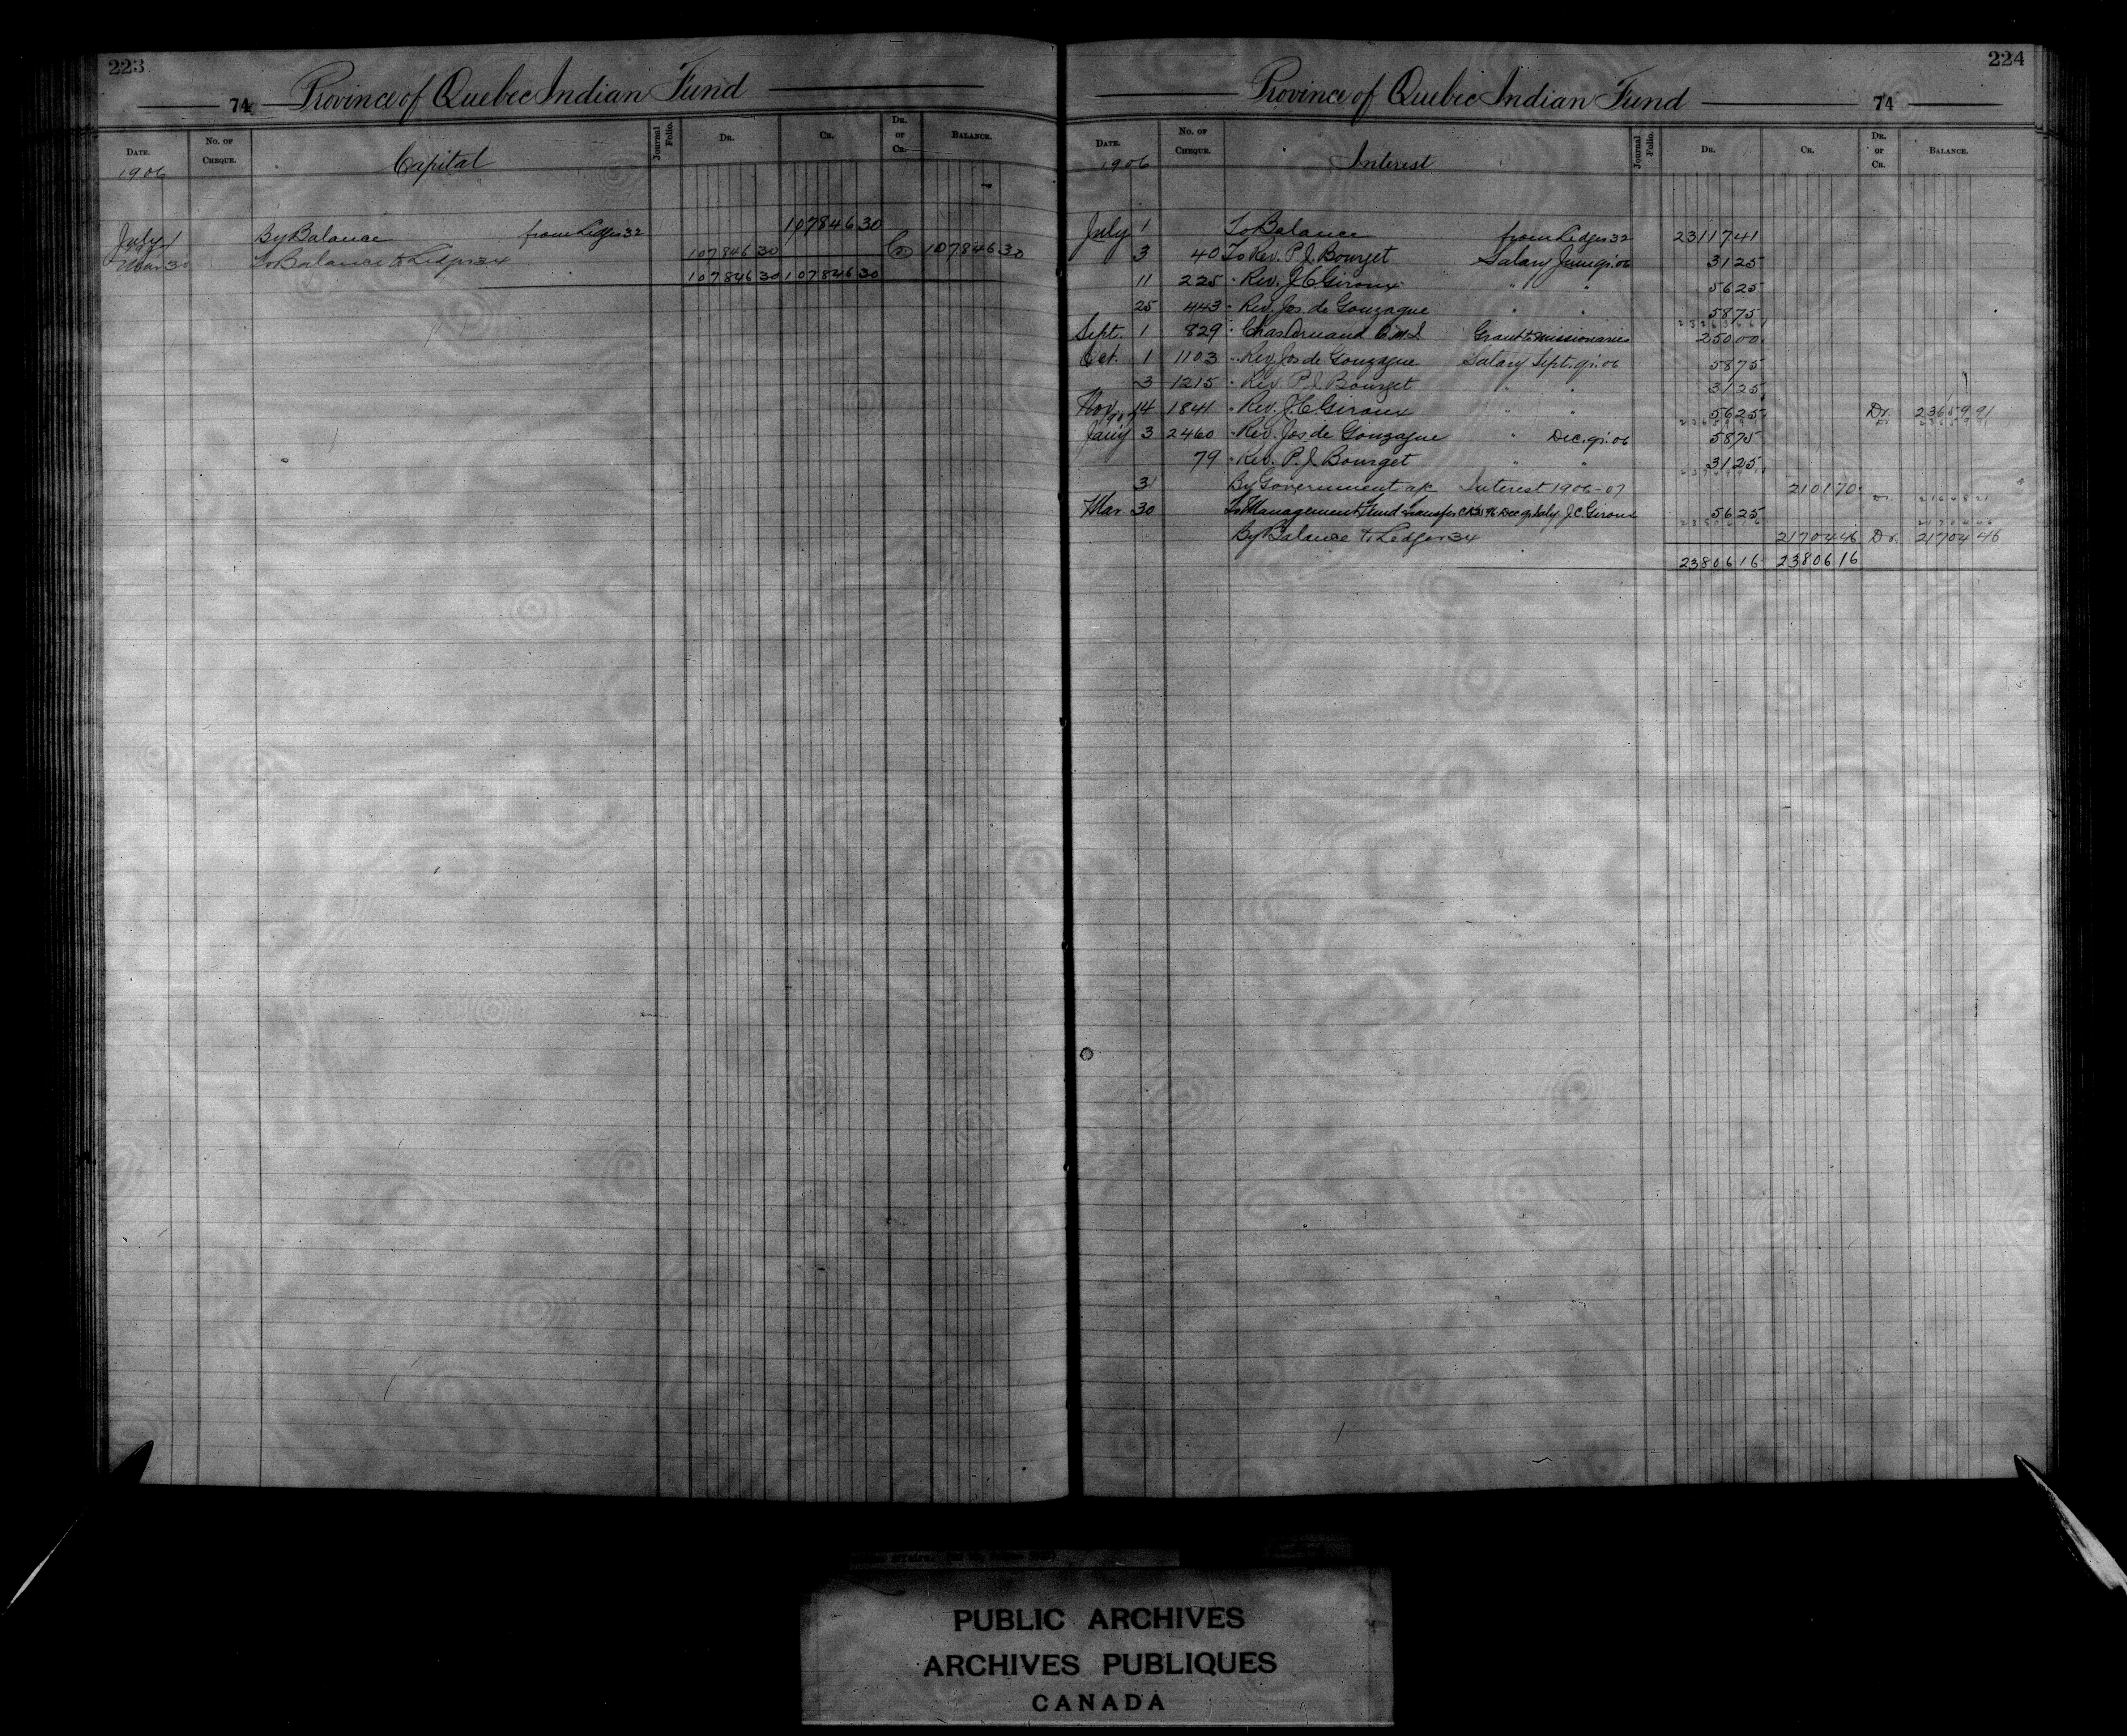 223
74 Province of Quebec Indian Fund
DATE. No. of CHEQUE. Capital Journal Folio. DR. CR. DR. or CR. BALANCE.
1906
July 1 By Balance from Ledger 32 107846 30
1907
Mar 30 To Balance to Ledger 34 107846 30 Cr. 107846 30
107846 30 107846 30
224
Province of Quebec Indian Fund 74
DATE. No. of CHEQUE. Interest Journal Folio. DR. CR. DR. or CR. BALANCE.
1906
July 1 To Balance from Ledger 32 23117 41
3 40 To Rev. P. J. Bourget Salary June qr. 06 31 25
11 225 " Rev. J. C. Giroux " " 56 25
25 443 " Rev. Jos. de Gonzague " " 58 75
23263 66
Sept. 1 829 " Chas Arnaud O.M.I. Grant to Missionaries 250 00
Oct. 1 1103 " Rev. Jos de Gonzague Salary Sept. qr. 06 58 75
3 1215 " Rev. P. J. Bourget " " 31 25
Nov. 14 1841 " Rev. J. C. Giroux " " 56 25 Dr. 23659 91
1907
23659 91 Dr 23659 91
Jan'y 3 2460 " Rev. Jos de Gonzague " Dec. qr. 06 58 75
79 " Rev. P. J. Bourget " " 31 25
23749 91
31 By Government a/c Interest 1906-07 2101 70 Dr. 21648 21
Mar. 30 To Management Fund transfer Dec qr Saly J. C. Giroux 56 25
23806 16 21704 46
By Balance to Ledger 34 21704 46 Dr. 21704 46
23806 16 23806 16
PUBLIC ARCHIVES
ARCHIVES PUBLIQUES
CANADA